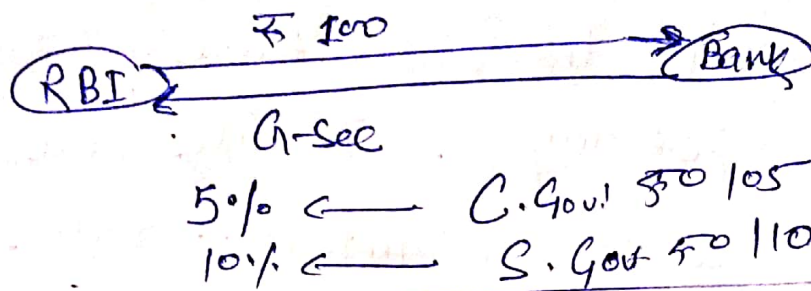 ₹ 100
RBI Bank
G-Sec
5% ← C. Govt ₹ 105
10% ← S. Govt ₹ 110